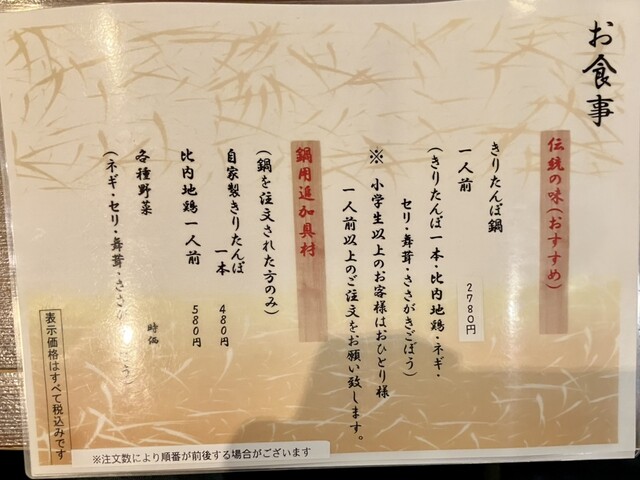 お食事
伝統の味(おすすめ)
きりたんぽ鍋
一人前 2780円
(きりたんぽ一本・比内地鶏・ネギ・
セリ・舞茸・ささがきごぼう)
※ 小学生以上のお客様はおひとり様
一人前以上のご注文をお願い致します。
鍋用追加具材
(鍋を注文された方のみ)
自家製きりたんぽ
一本 480円
比内地鶏一人前 580円
各種野菜 時価
(ネギ・セリ・舞茸・ささがきごぼう)
表示価格はすべて税込みです
※注文数により順番が前後する場合がございます